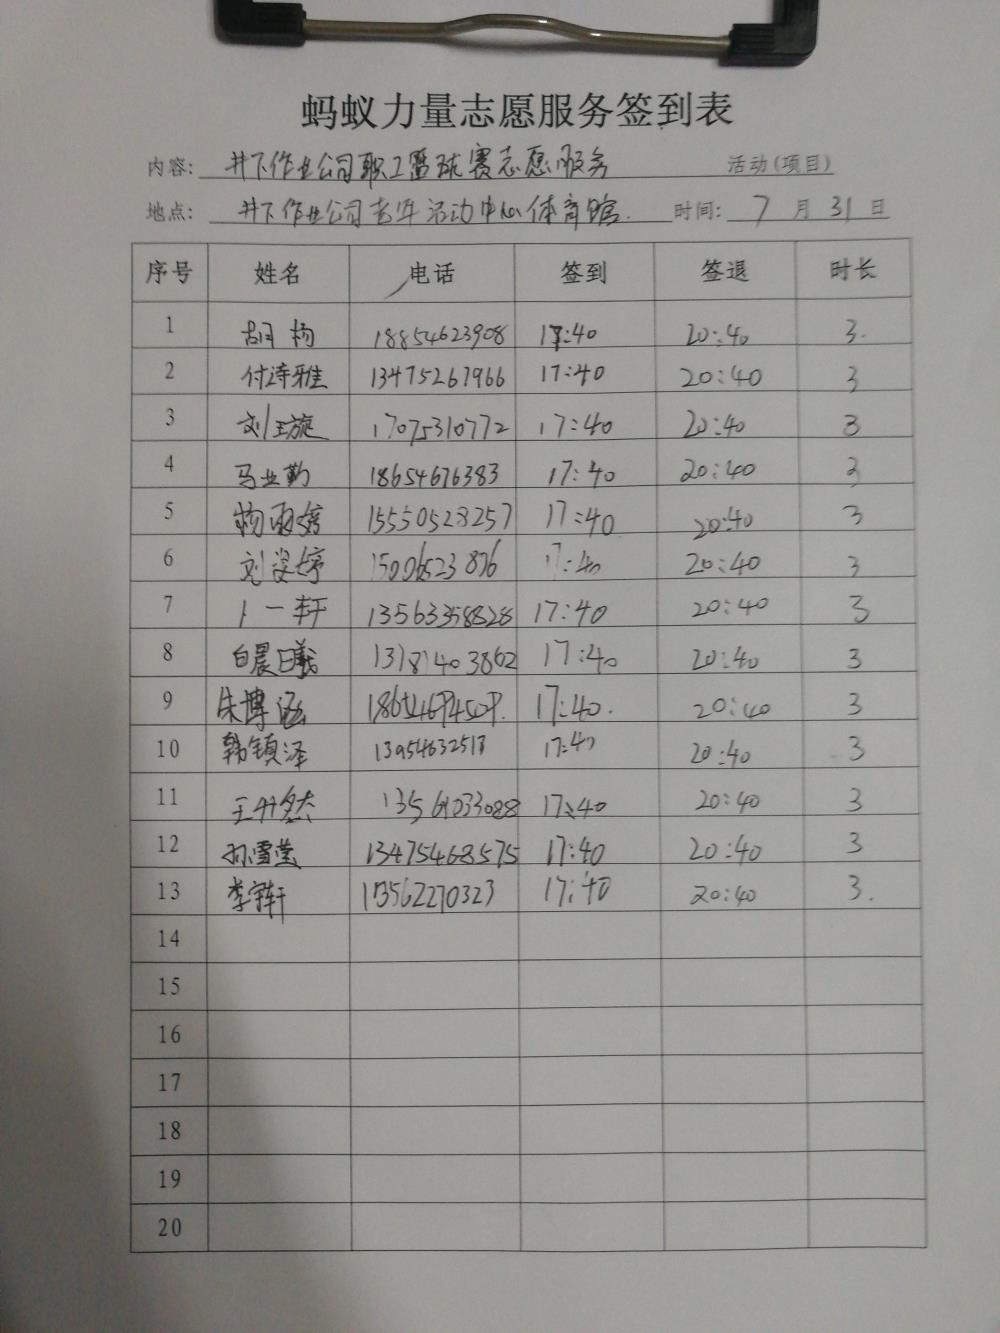 蚂蚁力量志愿服务签到表
内容: 井下作业公司职工篮球赛志愿服务 活动(项目)
地点: 井下作业公司老年活动中心体育馆. 时间: 7 月 31 日
序号 姓名 电话 签到 签退 时长
1 胡杨 18854623908 17:40 20:40 3.
2 付诗雅 13475267966 17:40 20:40 3
3 刘玉旋 17075310772 17:40 20:40 3
4 马业勤 18654676383 17:40 20:40 3
5 杨雨婷 15550528257 17:40 20:40 3
6 刘姿婷 17:40 20:40 3
7 卜一轩 13563358828 17:40 20:40 3
8 白晨曦 13181403862 17:40 20:40 3
9 朱博涵 17:40. 20:40 3
10 韩镇泽 13954632518 17:40 20:40 3
11 13561033088 17:40 20:40 3
12 孙雪莹 13475468575 17:40 20:40 3
13 李宇轩 13562270323 17:40 20:40 3.
14
15
16
17
18
19
20